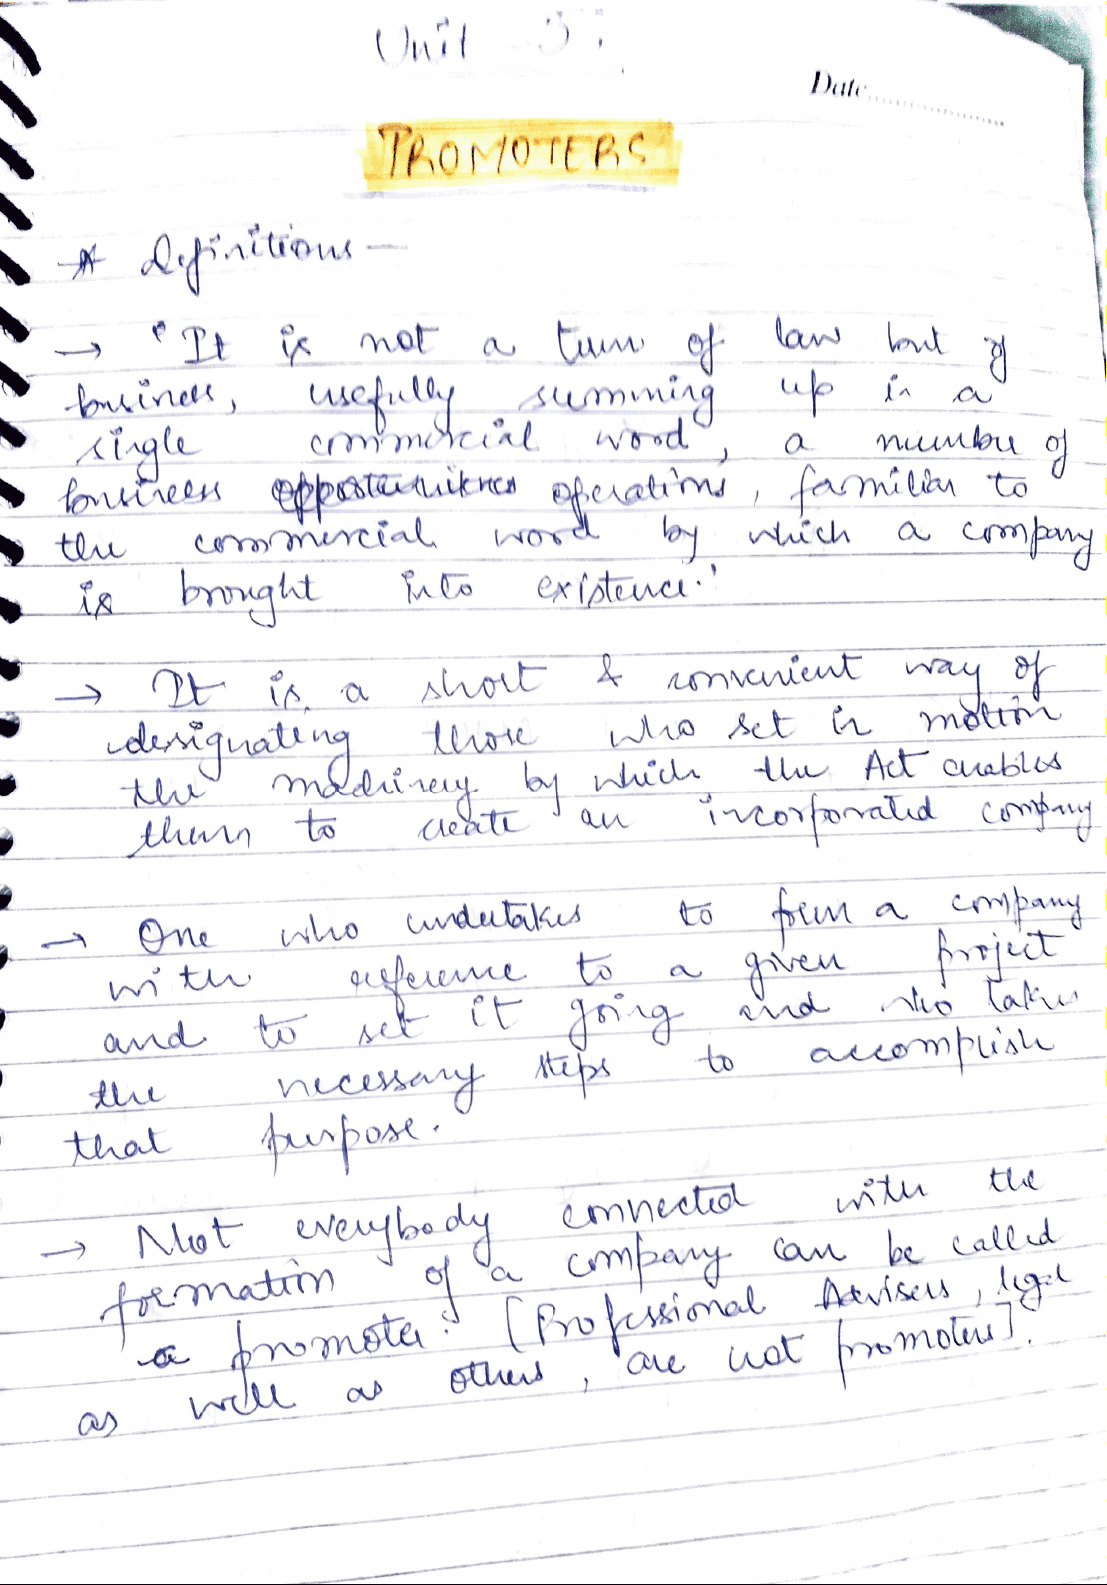 Unit - 3:
Date
PROMOTERS
* Definitions -
→ 'It is not a term of law but of
business, usefully summing up in a
single commercial word, a number of
business opportunities operations, familiar to
the commercial word by which a company
is brought into existence.'
→ It is a short & convenient way of
designating those who set in motion
the machinery by which the Act enables
them to create an incorporated company
→ One who undertakes to form a company
with reference to a given project
and to set it going and who takes
the necessary steps to accomplish
that purpose.
→ Not everybody connected with the
formation of a company can be called
a promoter. [Professional Advisers, legal
as well as others, are not promoters].